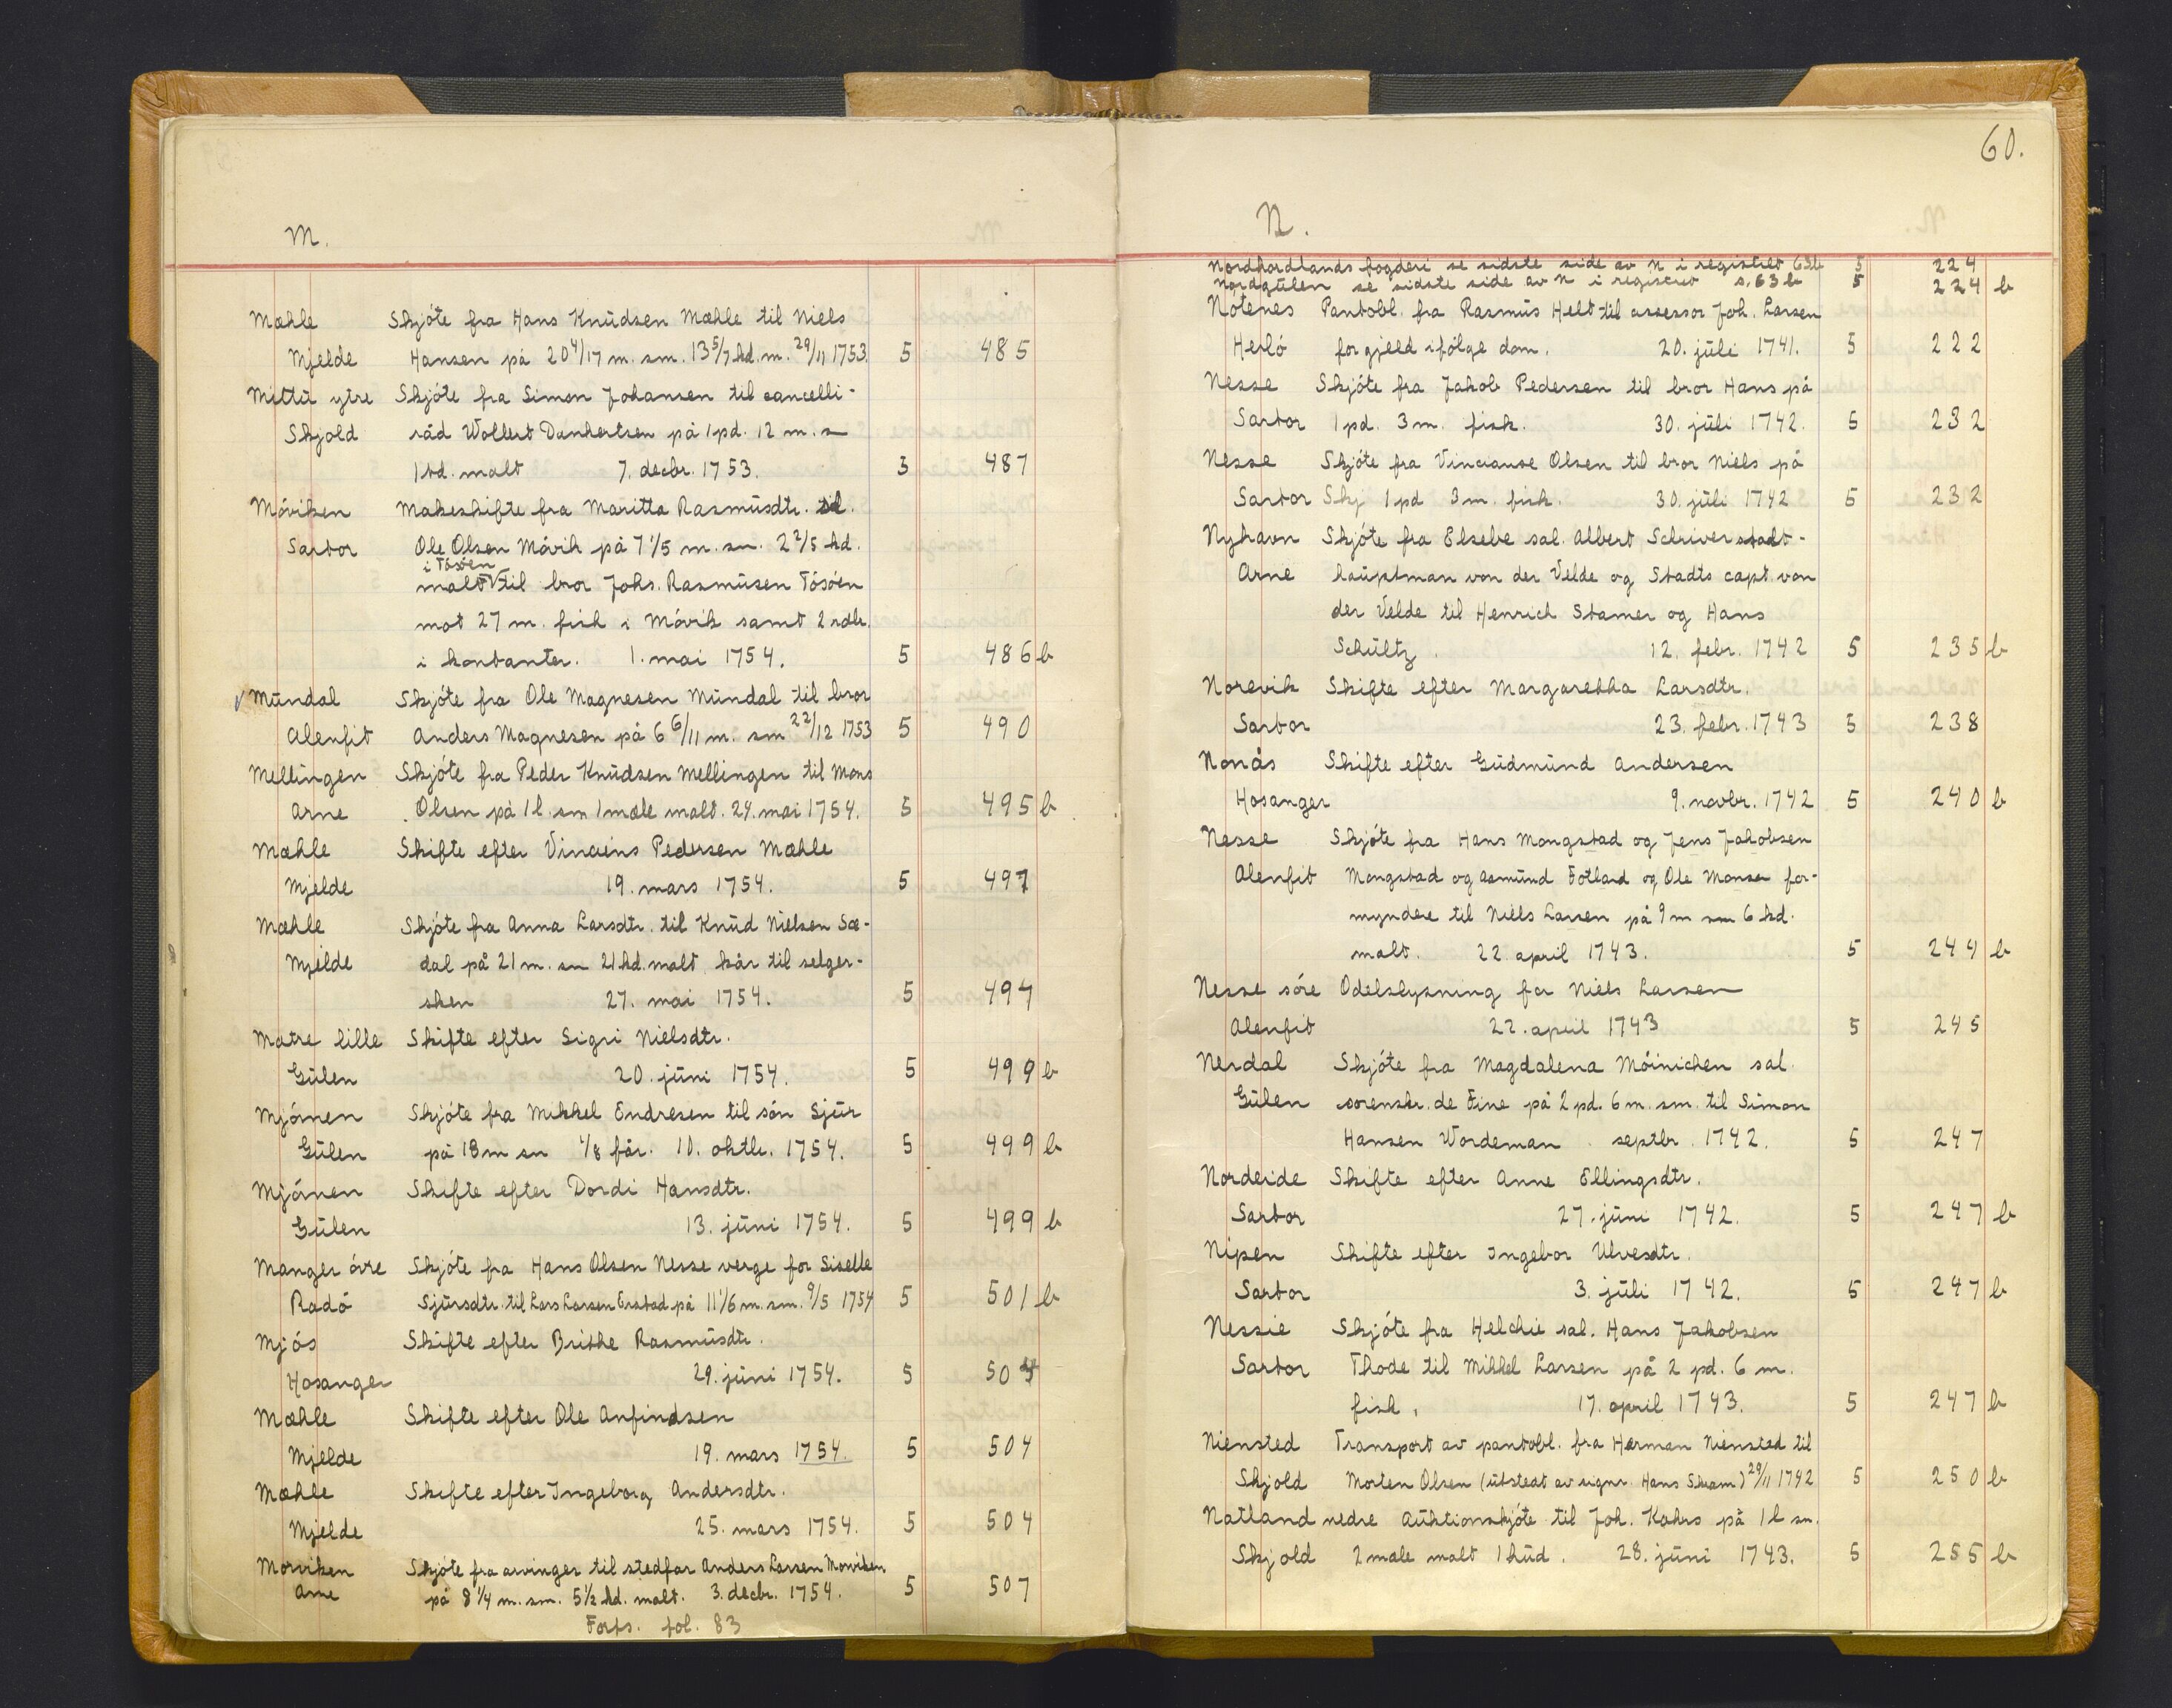 M.
Mæhle Skjöte fra Hans Knudsen Mæhle til Niels
Mjelde Hansen på 20 4/17 m. sm. 13 5/7 hd. m. 29/11 1753. 5 485
Mittu ytre Skjöte fra Simon Johansen til cancelli-
Skjold råd Wollert Dankertsen på 1 pd. 12 m. s
1 td. malt 7. decbr. 1753. 3 487
Möviken Makeskifte fra Maritta Rasmusdtr. til.
Sartor Ole Olsen Mövik på 7 1/5 m. sm. 2 2/5 hd.
i Tösöen
malt til bror Johs. Rasmusen Tösöen
mot 27 m. fisk i Mövik samt 2 rdlr.
i kontanter. 1. mai 1754. 5 486 b
✓ Mundal Skjöte fra Ole Magnesen Mundal til bror
Alenfit Anders Magnesen på 6 6/11 m. sm 22/12 1753 5 490
Mellingen Skjöte fra Peder Knudsen Mellingen til Mons
Arne Olsen på 1 l. sm 1 mæle malt. 24. mai 1754. 5 495 b
Mæhle Skifte efter Vinciens Pedersen Mæhle
Mjelde 19. mars 1754. 5 497
Mæhle Skjöte fra Anna Larsdtr. til Knud Nielsen Sæ-
Mjelde dal på 21 m. sm 21 hd. malt, kår til selger-
sken 27. mai 1754. 5 497
Matre lille Skifte efter Sigri Nielsdtr.
Gulen 20. juni 1754. 5 499 b
Mjömen Skjöte fra Mikkel Endresen til sön Sjur
Gulen på 18 m sm 1/8 får. 10. oktbr. 1754. 5 499 b
Mjömen Skifte efter Dordi Hansdtr.
Gulen 13. juni 1754. 5 499 b
Manger övre Skjöte fra Hans Olsen Nesse verge for Siselle
Radö Sjursdtr. til Lars Larsen Erstad på 11 1/6 m. sm. 9/5 1754 5 501 b
Mjös Skifte efter Brithe Rasmusdtr.
Hosanger 29. juni 1754. 5 504
Mæhle Skifte efter Ole Anfindsen
Mjelde 19. mars 1754. 5 504
Mæhle Skifte efter Ingeborg Andersdtr.
Mjelde 25. mars 1754. 5 504
Morviken Skjöte fra arvinger til stedfar Anders Larsen Morviken
Arne på 8 1/4 m. sm. 5 1/2 hd. malt. 3. decbr. 1754. 5 507
Forts. fol. 83
60.
N.
Nordhordlands fogderi se sidste side av N i registret 63b 5 224
Nordgulen se sidste side av N i registret s. 63 b 5 224 b
Notenes Pantobl. fra Rasmus Helt til assessor Joh. Larsen
Herlö for gjeld ifölge dom. 20. juli 1741. 5 222
Nesse Skjöte fra Jakob Pedersen til bror Hans på
Sartor 1 pd. 3 m. fisk. 30. juli 1742. 5 232
Nesse Skjöte fra Vinciause Olsen til bror Niels på
Sartor Skj 1 pd 3 m. fisk. 30. juli 1742 5 232
Nyhavn Skjöte fra Elsebe sal. Albert Schriver stadt-
Arne hauptman von der Velde og Stadts capt. von
der Velde til Henrich Stamer og Hans
Schultz. 12. febr. 1742 5 235 b
Norevik Skifte efter Margarethha Larsdtr.
Sartor 23. febr. 1743 5 238
Nonås Skifte efter Gudmund Andersen
Hosanger 9. novbr. 1742 5 240 b
Nesse Skjöte fra Hans Mongstad og Jens Jakobsen
Alenfit Mongstad og Asmund Fotland og Ole Monsen for-
myndere til Niels Larsen på 9 m sm 6 hd.
malt. 22 april 1743. 5 244 b
Nesse söre Odelslysning for Niels Larsen
Alenfit 22. april 1743 5 245
Nerdal Skjöte fra Magdalena Möinichen sal.
Gulen sorenskr. de Fine på 2 pd. 6 m. sm. til Simon
Hansen Wordeman. septbr. 1742. 5 247
Nordeide Skifte efter Anne Ellingsdtr.
Sartor 27. juni 1742. 5 247 b
Nipen Skifte efter Ingebor Ulvesdtr.
Sartor 3. juli 1742. 5 247 b
Nessie Skjöte fra Helchie sal. Hans Jakobsen
Sartor Thode til Mikkel Larsen på 2 pd. 6 m.
fisk. 17. april 1743. 5 247 b
Niensted Transport av pantobl. fra Herman Niensted til
Skjold Morten Olsen (utstedt av signr. Hans Skram) 29/11 1742 5 250 b
Natland nedre Auktionskjöte til Joh. Kahrs på 1 l sm.
Skjold 2 mæle malt 1 hud. 28. juni 1743. 5 255 b